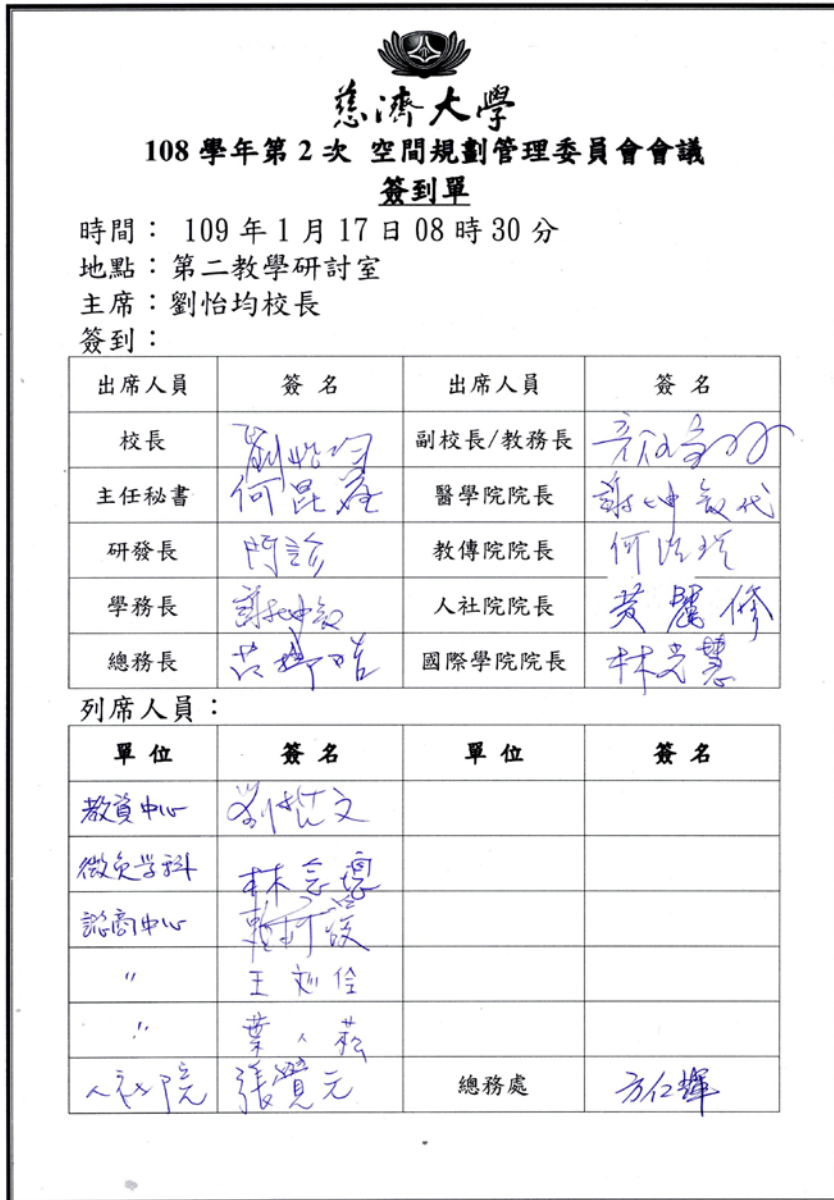 慈濟大學
108 學年第 2 次 空間規劃管理委員會會議
簽到單
時間： 109 年 1 月 17 日 08 時 30 分
地點：第二教學研討室
主席：劉怡均校長
簽到：
出席人員 簽 名 出席人員 簽 名
校長 劉怡均 副校長/教務長
主任秘書 何昆益 醫學院院長 謝坤叡代
研發長 教傳院院長
學務長 謝坤叡 人社院院長 黃麗修
總務長 國際學院院長 林光慧
列席人員：
單 位 簽 名 單 位 簽 名
教資中心
微免学科 林念璁
諮商中心
〃 王
〃 葉
人社院 張覺元 總務處 方仁輝